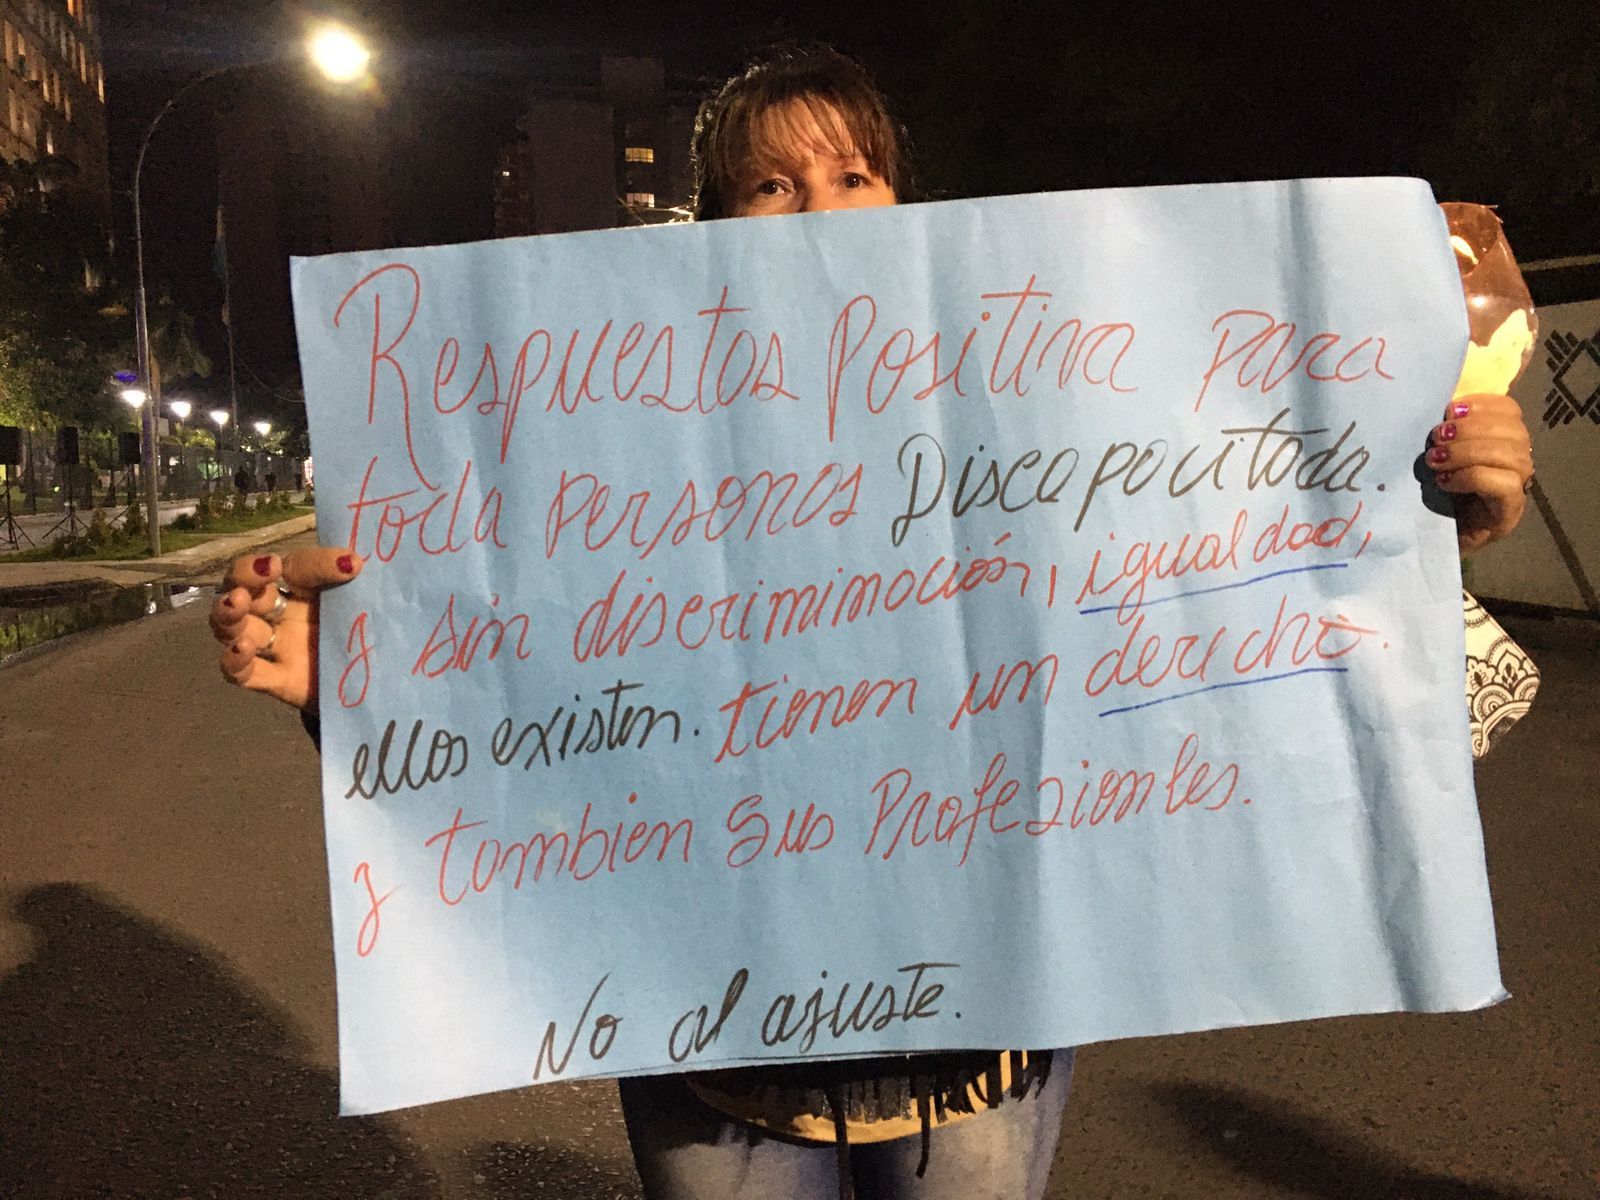 Respuestas Positiva para
toda personas Discapacitada.
y sin discriminación, igualdad,
ellos existen. tienen un derecho.
y tambien sus Profesionles.
No al ajuste.